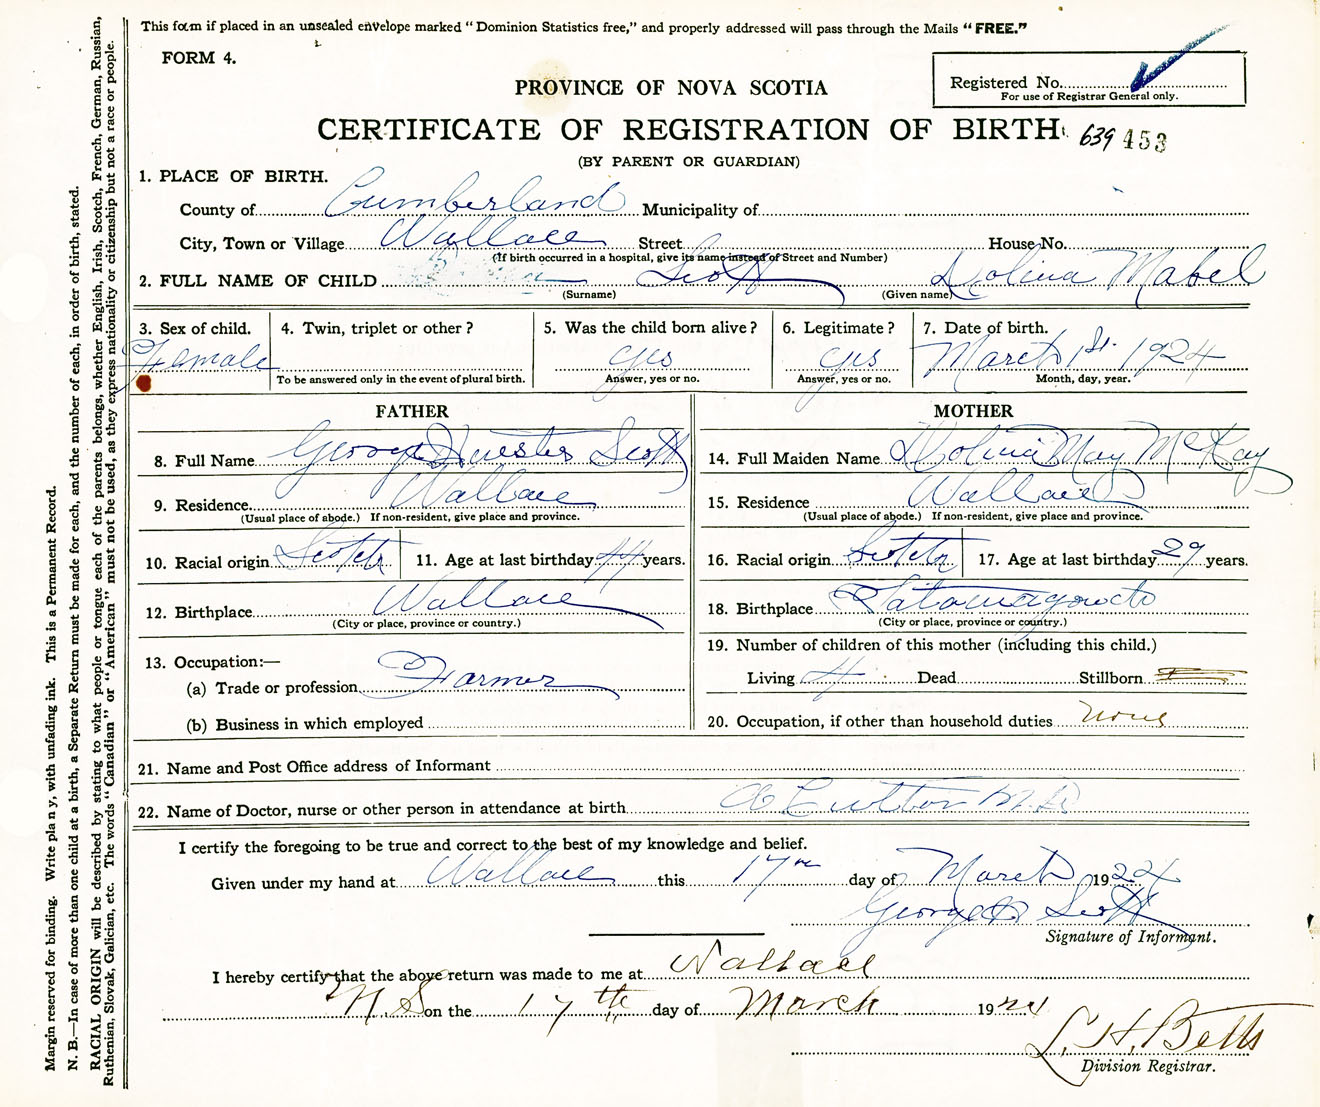 This form if placed in an unsealed envelope marked “Dominion Statistics free,” and properly addressed will pass through the Mails “FREE.”
FORM 4.
Registered No.
For use of Registrar General only.
PROVINCE OF NOVA SCOTIA
CERTIFICATE OF REGISTRATION OF BIRTH 639 453
(BY PARENT OR GUARDIAN)
1. PLACE OF BIRTH.
County of Cumberland Municipality of
City, Town or Village Wallace Street House No.
(If birth occurred in a hospital, give its name instead of Street and Number)
2. FULL NAME OF CHILD Scott Dolina Mabel
(Surname) (Given name)
3. Sex of child. 4. Twin, triplet or other? 5. Was the child born alive? 6. Legitimate? 7. Date of birth.
Female yes yes March 1st. 1924
To be answered only in the event of plural birth. Answer, yes or no. Answer, yes or no. Month, day, year.
FATHER MOTHER
8. Full Name George Scott 14. Full Maiden Name Dolina May McKay
9. Residence Wallace 15. Residence Wallace
(Usual place of abode.) If non-resident, give place and province. (Usual place of abode.) If non-resident, give place and province.
10. Racial origin Scotch 11. Age at last birthday 44 years. 16. Racial origin Scotch 17. Age at last birthday 29 years.
12. Birthplace Wallace 18. Birthplace
(City or place, province or country.) (City or place, province or country.)
13. Occupation:— 19. Number of children of this mother (including this child.)
(a) Trade or profession Farmer Living 4 Dead Stillborn
(b) Business in which employed 20. Occupation, if other than household duties none
21. Name and Post Office address of Informant
22. Name of Doctor, nurse or other person in attendance at birth M.D.
I certify the foregoing to be true and correct to the best of my knowledge and belief.
Given under my hand at Wallace this 17 day of March 1924
George Scott
Signature of Informant.
I hereby certify that the above return was made to me at Wallace
N.S. on the 17th day of March 1924
L. H. Betts
Division Registrar.
Margin reserved for binding. Write plainy, with unfading ink. This is a Permanent Record.
N. B.—In case of more than one child at a birth, a Separate Return must be made for each, and the number of each, in order of birth, stated.
RACIAL ORIGIN will be described by stating to what people or tongue each of the parents belongs, whether English, Irish, Scotch, French, German, Russian,
Ruthenian, Slovak, Galician, etc. The words “Canadian” or “American” must not be used, as they express nationality or citizenship but not a race or people.